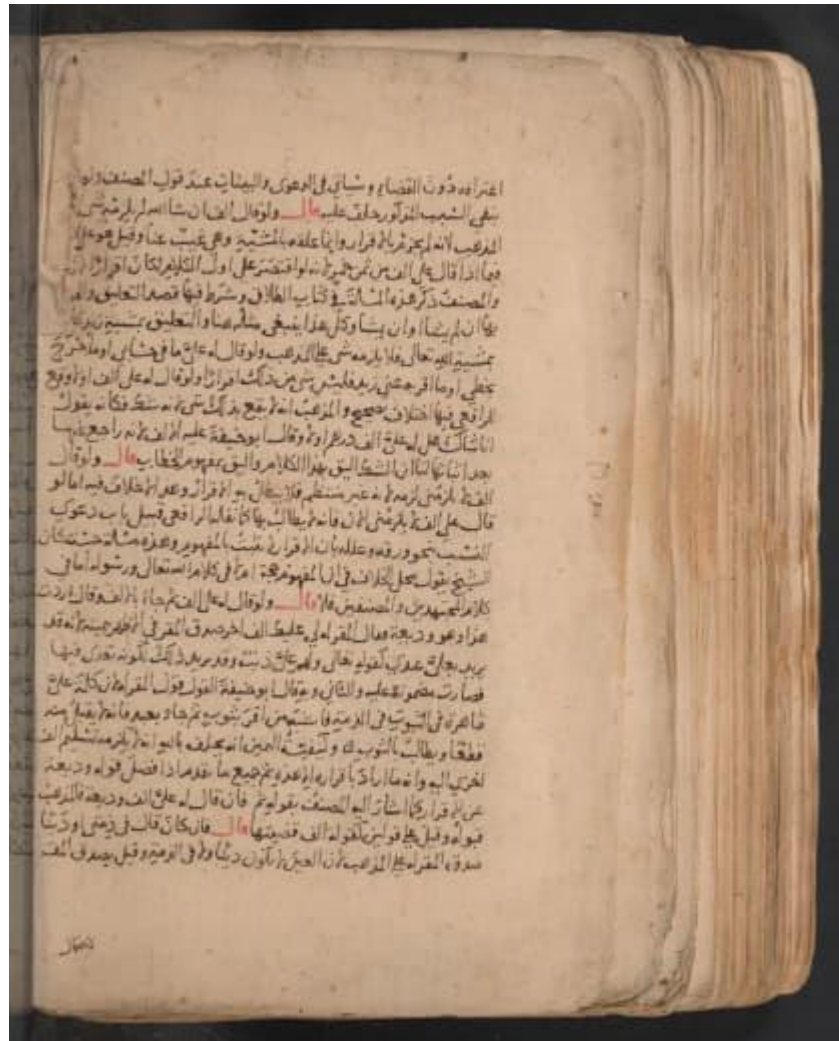 اعترافه دون القضاء وسياتي في الدعوى والبينات عند قول المصنف
نفى السبب المذكور حلف عليه قال ولو قال الف ان شا الله لم يلزمه شي
المذهب لانه لم يجزم بالاقرار وانما علقه بالمشية وهي غيب عنا وقيل هو على
فيما اذا قال على الف من ثمن خمر لانه لو اقتصر على اول الكلام لكان اقرارا
والمصنف ذكر هذه المسالة في كتاب الطلاق وشرط فيها قصد التعليق
بها ان لم يشا او ان يشا وكل هذا ينبغي مثله هنا والتعليق بمشية زيد
بمشية الله تعالى فلا يلزمه شي على المذهب ولو قال له علي ما في حسابي او ما خرج
بخطي او ما اقر به عني زيد فليس شي من ذلك اقرارا ولو قال له على الف او لا وقع
للرافعي فيها اختلاف والمذهب انه لا يقع بذلك شي لانه شك فكانه يقول
انا شاك هل له علي الف درهم او لا وقال ابو حنيفة عليه الالف لانه راجع
بعد اثباتها لنا ان الشك اليق بهذا الكلام واليق بمفهوم الخطاب قال ولو قال
الف لا يلزمني لزمه لانه غير منتظم فلا يبطل به الاقرار وعدم الخلاف فيه اما لو
قال علي الف لا يلزمني الان فانه لا يطالب بها كما نقله الرافعي قبيل باب دعوى
النسب بنحو ورقة وعلله بان الاقرار لا يثبت بالمفهوم وهذه مسالة حسنة كان
الشيخ يقول محل الخلاف في ان المفهوم حجة ام لا في كلام الله تعالى ورسوله اما في
كلام المجتهدين والمصنفين فلا قال ولو قال له على الف ثم جاء بالف وقال اردت
هذا وهو وديعة فقال المقر له لي عليك الف اخر صدق المقر في الاظهر بيمينه لانه قد
يريد بعلي عندي كقوله تعالى ولهم علي ذنب وقد يريد ذلك لكونه تعدى فيها
فصارت مضمونة عليه والثاني وبه قال ابو حنيفة القول قول المقر له لان كلمة علي
ظاهرة في الثبوت في الذمة اقر بثوب ثم جاء بعبد فانه لا يقبل منه
قطعا ويطالب بالثوب وكيفية اليمين انه يحلف بالله انه لا يلزمه تسليم الف
اخرى اليه وانه ما اراد باقراره الا هذه ثم جميع ما تقدم اذا فصل قوله وديعة
عن الاقرار كما اشار اليه المصنف بقوله ثم فان قال له علي الف وديعة فالمذهب
قبوله وقيل على قولين كقوله الف قضيتها قال فان كان قال في ذمتي او دينا
صدق المقر له على المذهب لان العين لا تكون دينا ولا في الذمة وقيل يصدق المقر